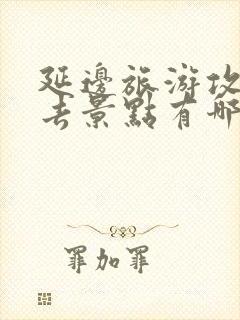 延邊旅游攻
去景點有哪
罪加罪